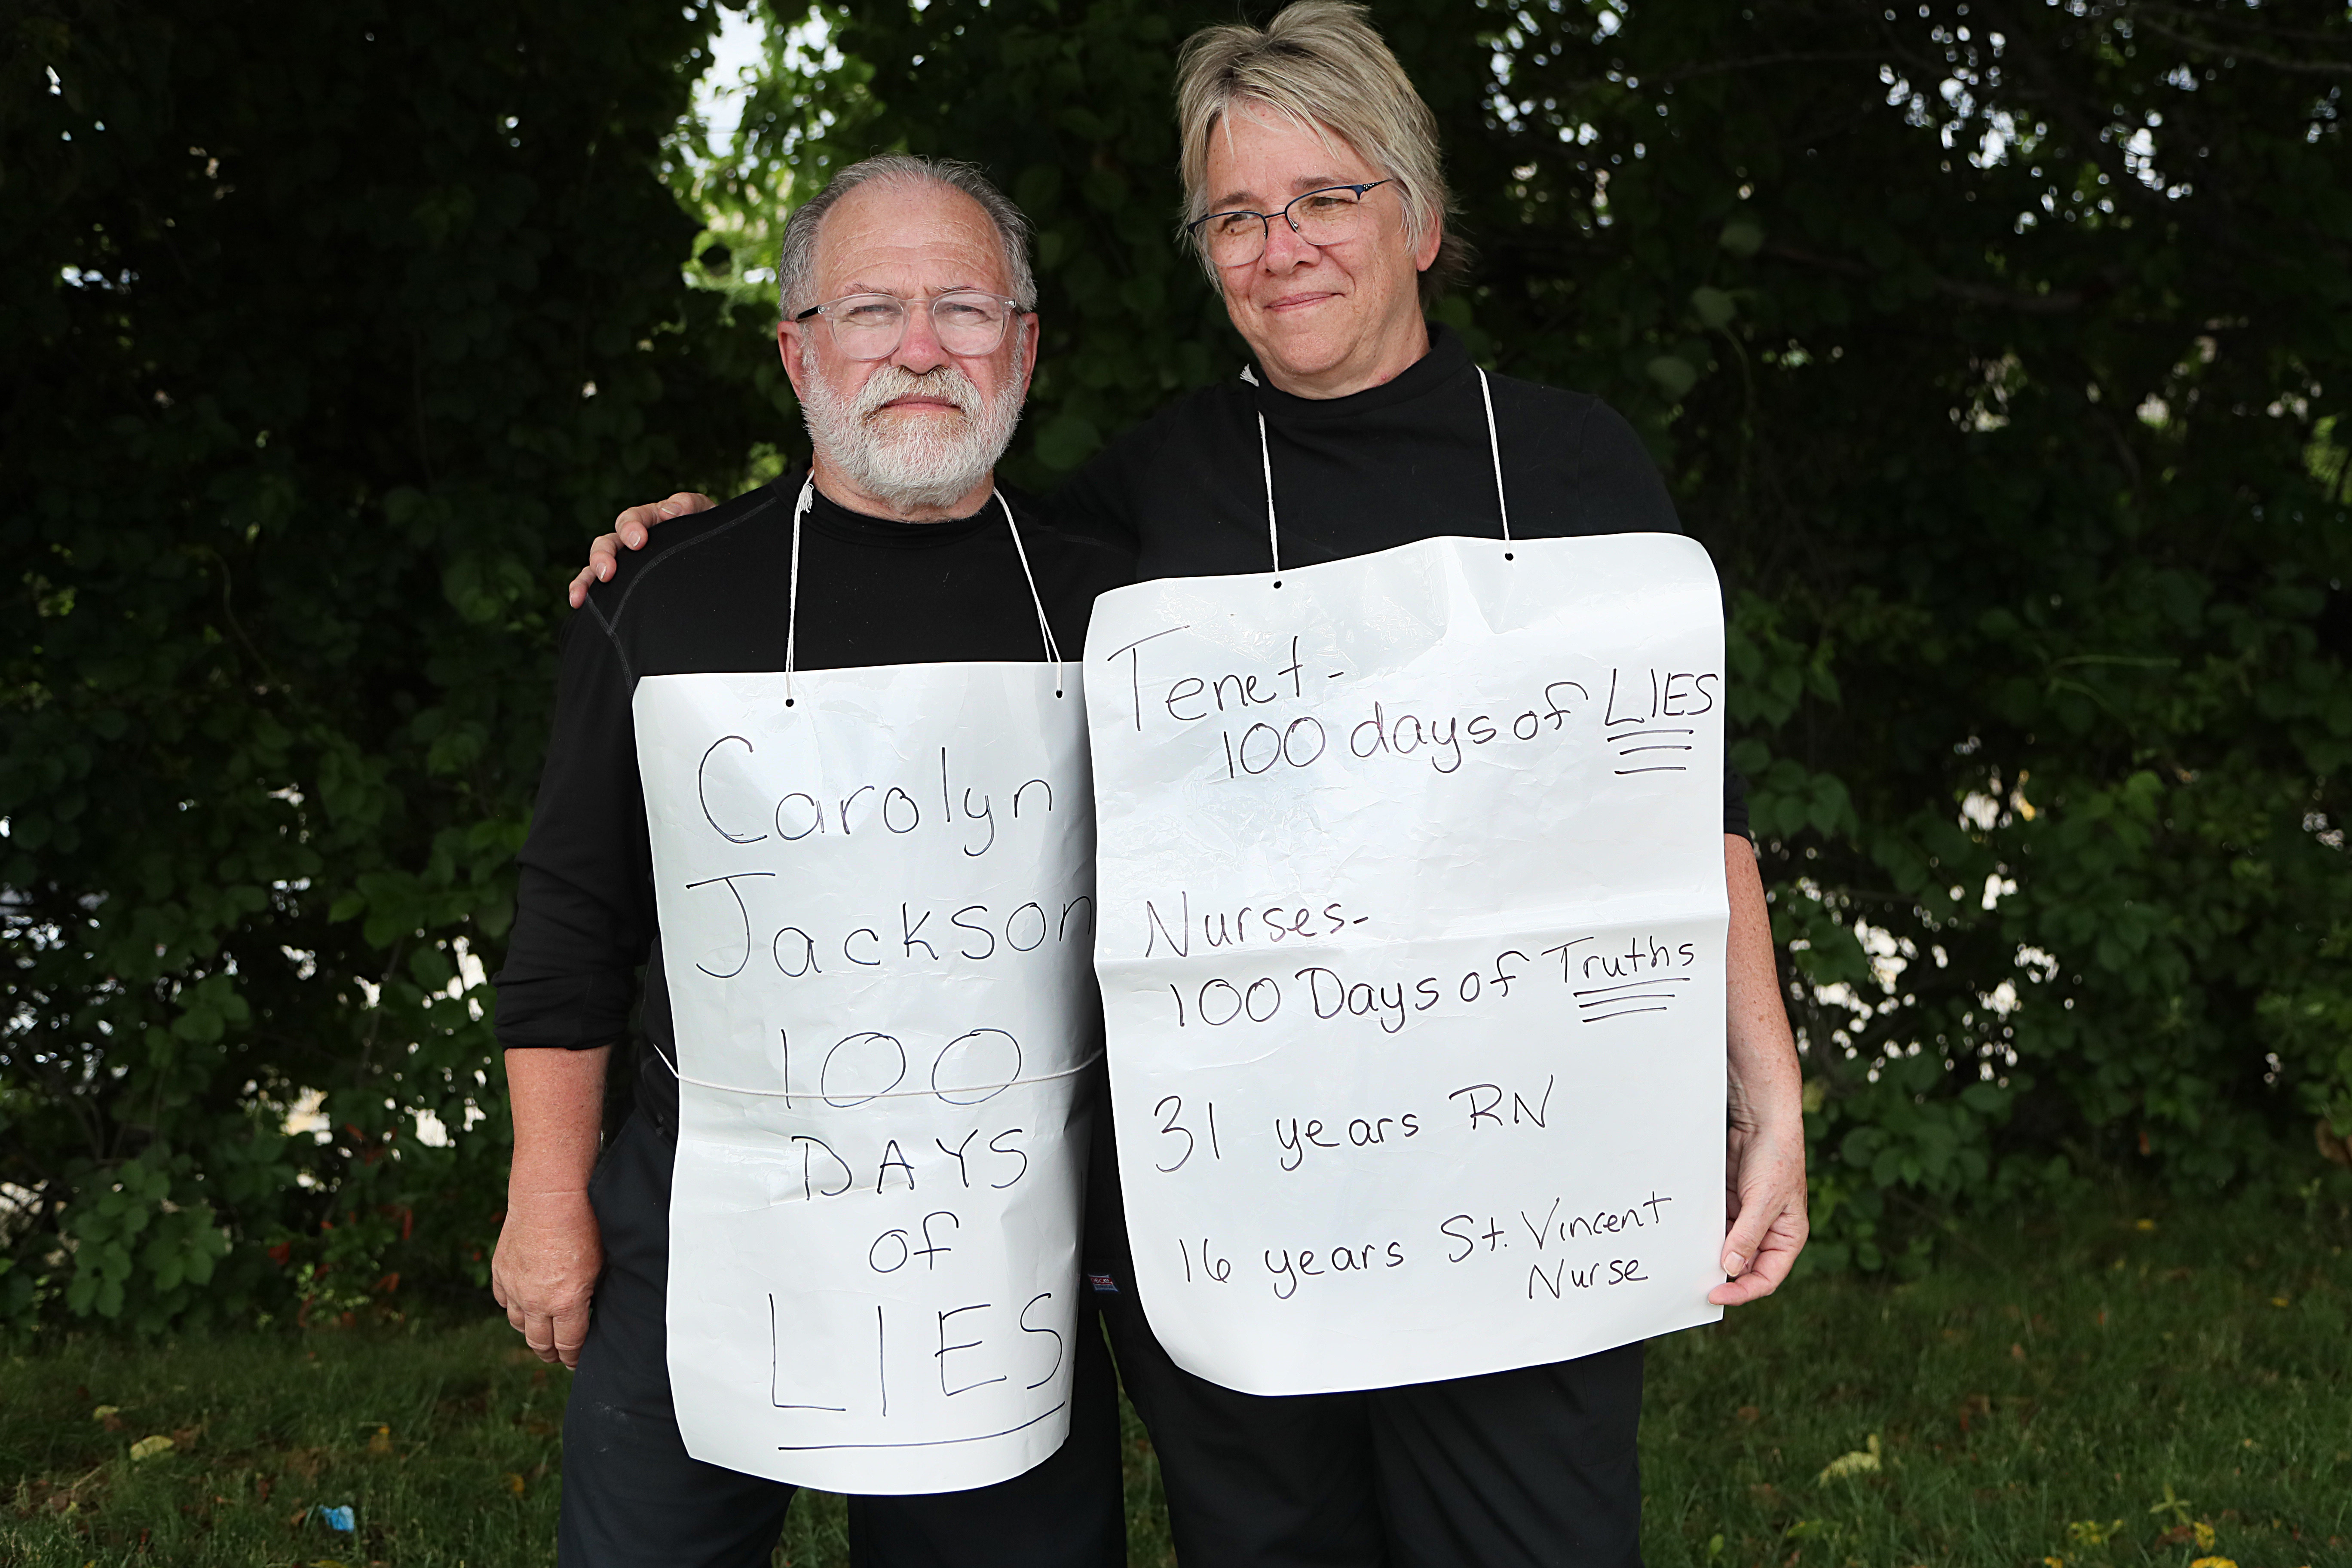 Carolyn
Jackson
100
DAYS
of
LIES
Tenet-
100 days of LIES
Nurses-
100 Days of Truths
31 years RN
16 years St. Vincent
Nurse